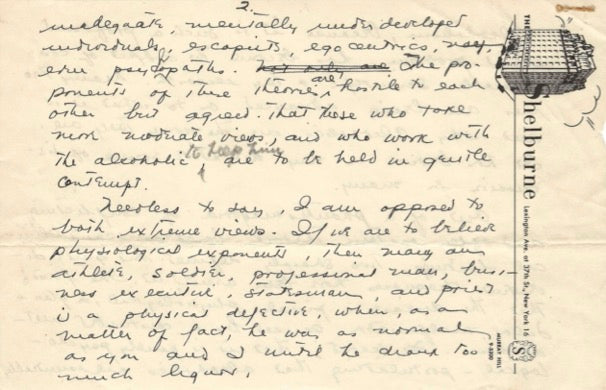 2.
inadequate, mentally under developed
individuals, escapists, egocentrics,
even psychopaths. Not only are The pro-
ponents of these theories are, hostile to each
other but agreed that those who take
more moderate views, and who work with
the alcoholic to help him are to be held in gentle
contempt.
Needless to say, I am opposed to
both extreme views. If we are to believe
physiological exponents, then many an
athlete, soldier, professional man, busi-
ness executive, statesman, and priest
is a physical defective, when, as a
matter of fact, he was as normal
as you and I until he drank too
much liquor.
THE
Shelburne
Lexington Ave. at 37th St., New York 16
MURRAY HILL
S